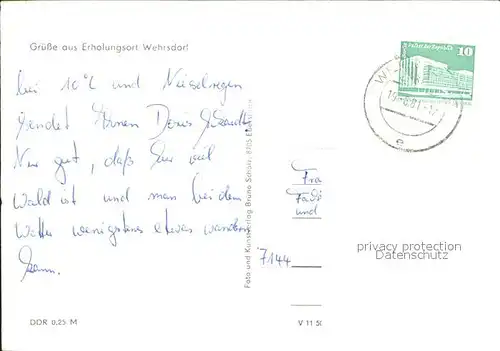 Grüße aus Erholungsort Wehrsdorf
bei 10°C und Nieselregen
sendet Ihnen Doris
Nur gut, daß hier viel
Wald ist und man bei dem
Wetter wenigstens etwas wandern
kann.
DDR 0,25 M
Foto und Kunstverlag Bruno Scholz, 8705
V 11 50
Palast der Republik
10
Fra
und
7144
privacy protection
Datenschutz